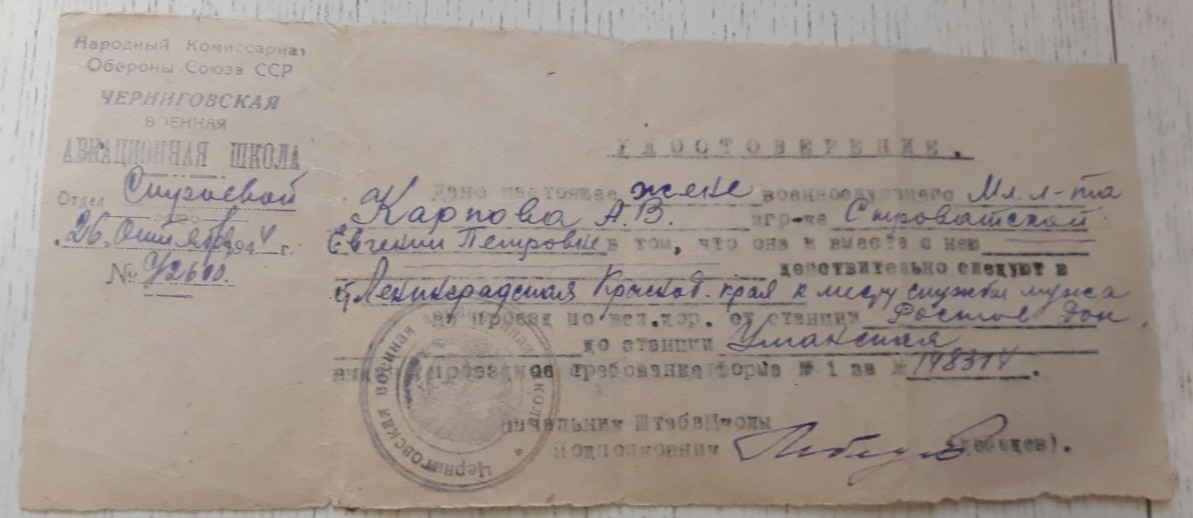 Народный Комиссариат
Обороны Союза ССР
ЧЕРНИГОВСКАЯ
ВОЕННАЯ
АВИАЦИОННАЯ ШКОЛА
Отдел Строевой
"26" Октября 1944 г.
№
УДОСТОВЕРЕНИЕ.
Дано настоящее жене военнослужащего Мл. л-та
Карпова А.В. игр-не Сыроватской
Евгении Петровне в том, что она и вместе с нею
действительно следуют в
Ленинградская Краснод. края к месту службы мужа
На проезд по жел.дор. от станции Ростов Дон
до станции Уманская
проездное требование форма № 1 за № 198314.
Начальник Штаба Школы
Подполковник (Лебедев).
Черниговская военная авиационная школа